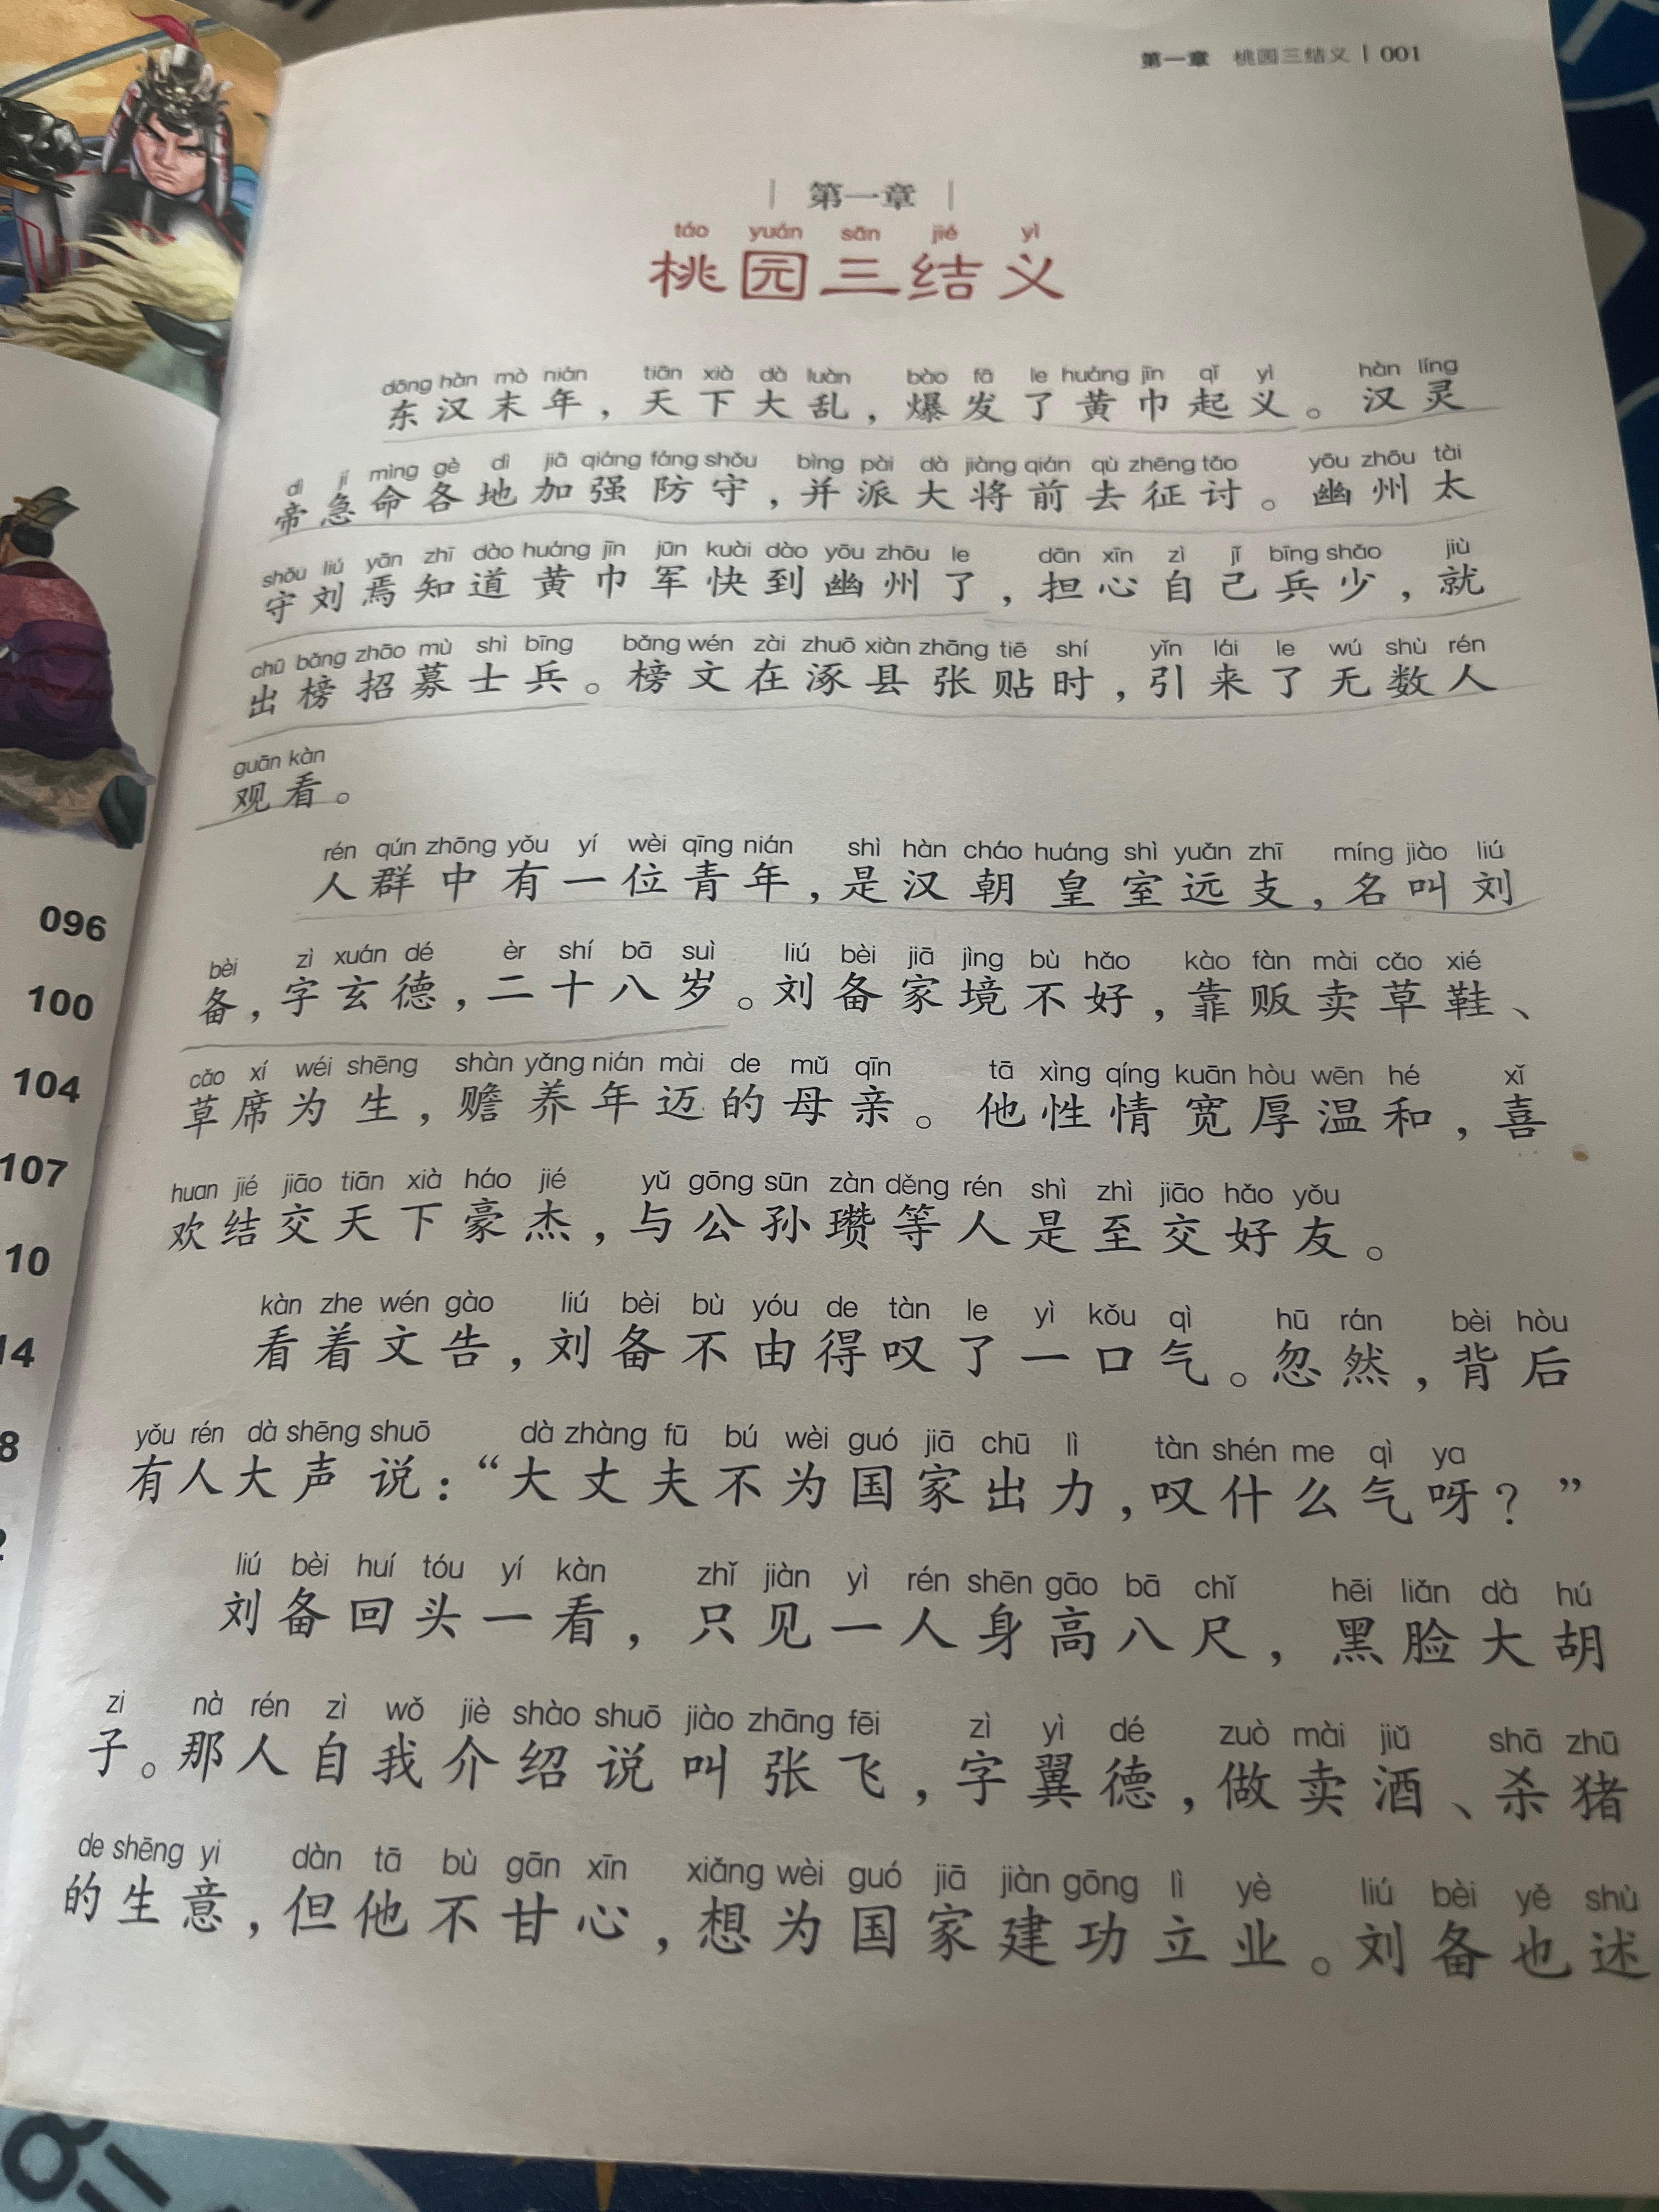 第一章 桃园三结义 | 001
第一章
táo yuán sān jié yì
桃园三结义
dōng hàn mò nián tiān xià dà luàn bào fā le huáng jīn qǐ yì hàn líng
东汉末年，天下大乱，爆发了黄巾起义。汉灵
dì jí mìng gè dì jiā qiáng fáng shǒu bìng pài dà jiàng qián qù zhēng tǎo yōu zhōu tài
帝急命各地加强防守，并派大将前去征讨。幽州太
shǒu liú yān zhī dào huáng jīn jūn kuài dào yōu zhōu le dān xīn zì jǐ bīng shǎo jiù
守刘焉知道黄巾军快到幽州了，担心自己兵少，就
chū bǎng zhāo mù shì bīng bǎng wén zài zhuō xiàn zhāng tiē shí yǐn lái le wú shù rén
出榜招募士兵。榜文在涿县张贴时，引来了无数人
guān kàn
观看。
rén qún zhōng yǒu yí wèi qīng nián shì hàn cháo huáng shì yuǎn zhī míng jiào liú
人群中有一位青年，是汉朝皇室远支，名叫刘
bèi zì xuán dé èr shí bā suì liú bèi jiā jìng bù hǎo kào fàn mài cǎo xié
备，字玄德，二十八岁。刘备家境不好，靠贩卖草鞋、
cǎo xí wéi shēng shàn yǎng nián mài de mǔ qīn tā xìng qíng kuān hòu wēn hé xǐ
草席为生，赡养年迈的母亲。他性情宽厚温和，喜
huan jié jiāo tiān xià háo jié yǔ gōng sūn zàn děng rén shì zhì jiāo hǎo yǒu
欢结交天下豪杰，与公孙瓒等人是至交好友。
kàn zhe wén gào liú bèi bù yóu de tàn le yì kǒu qì hū rán bèi hòu
看着文告，刘备不由得叹了一口气。忽然，背后
yǒu rén dà shēng shuō dà zhàng fū bú wèi guó jiā chū lì tàn shén me qì ya
有人大声说：“大丈夫不为国家出力，叹什么气呀？”
liú bèi huí tóu yí kàn zhǐ jiàn yì rén shēn gāo bā chǐ hēi liǎn dà hú
刘备回头一看，只见一人身高八尺，黑脸大胡
zi nà rén zì wǒ jiè shào shuō jiào zhāng fēi zì yì dé zuò mài jiǔ shā zhū
子。那人自我介绍说叫张飞，字翼德，做卖酒、杀猪
de shēng yi dàn tā bù gān xīn xiǎng wèi guó jiā jiàn gōng lì yè liú bèi yě shù
的生意，但他不甘心，想为国家建功立业。刘备也述
096
100
104
107
10
14
8